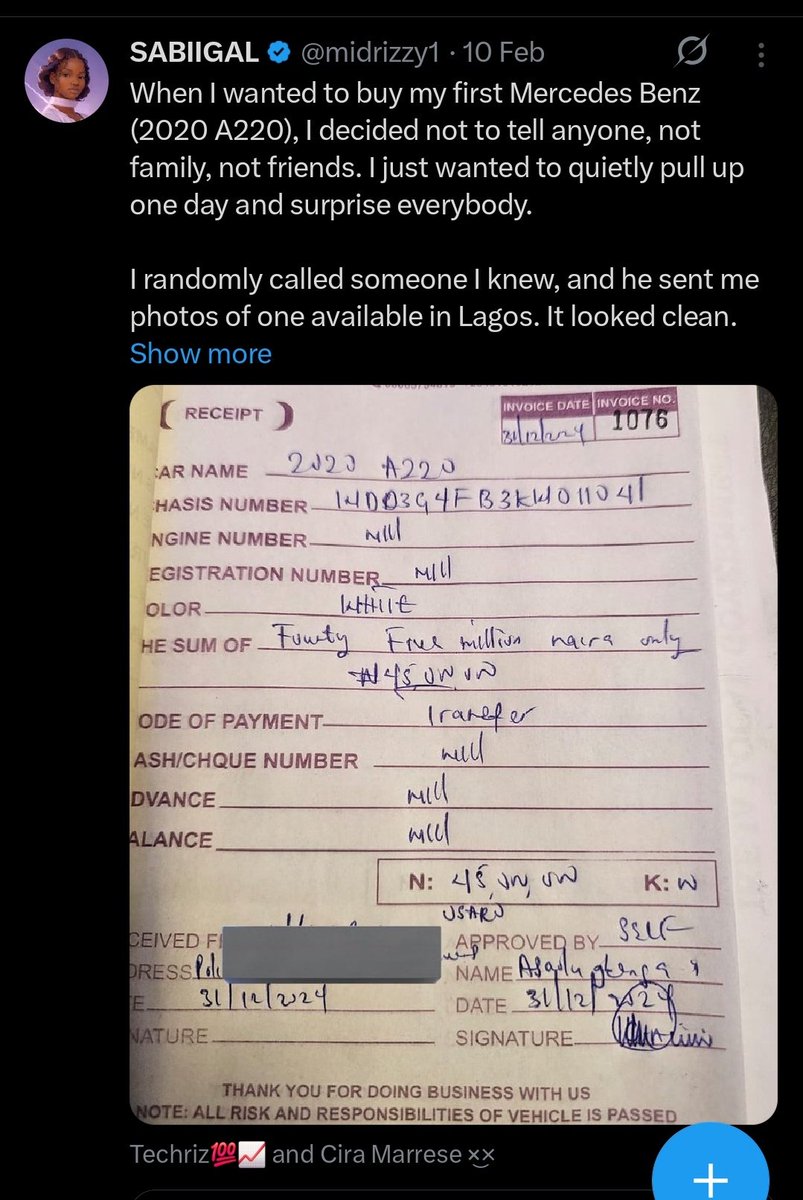 SABIIGAL @midrizzy1 · 10 Feb
When I wanted to buy my first Mercedes Benz
(2020 A220), I decided not to tell anyone, not
family, not friends. I just wanted to quietly pull up
one day and surprise everybody.
I randomly called someone I knew, and he sent me
photos of one available in Lagos. It looked clean.
Show more
RECEIPT
INVOICE DATE INVOICE NO.
31/12/2024 1076
CAR NAME 2020 A220
HASIS NUMBER WDD3G4FB3KW011041
NGINE NUMBER Nill
EGISTRATION NUMBER Nill
OLOR WHITE
HE SUM OF Fourty Five million naira only
₦45,00,00
ODE OF PAYMENT Transfer
ASH/CHQUE NUMBER Nill
DVANCE Nill
ALANCE Nill
N: 45,00,00 K: 00
USARD
CEIVED F APPROVED BY SELF
DRESS NAME
E 31/12/2024 DATE 31/12/2024
NATURE SIGNATURE
THANK YOU FOR DOING BUSINESS WITH US
NOTE: ALL RISK AND RESPONSIBILITIES OF VEHICLE IS PASSED
Techriz💯📈 and Cira Marrese